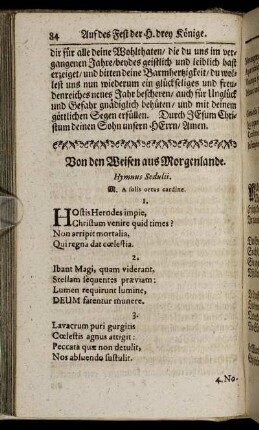 84 Auf des Fest der H. drey Könige.
dir für alle deine Wohlthaten, die du uns im ver-
gangenen Jahre, beydes geistlich und leiblich hast
erzeiget, und bitten deine Barmhertzigkeit, du wol-
lest uns nun wiederum ein glückseliges und freu-
denreiches neues Jahr bescheren, auch für Unglück
und Gefahr gnädiglich behüten, und mit deinem
göttlichen Segen erfüllen. Durch JEsum Chri-
stum deinen Sohn unsern HErrn, Amen.
Von den Weisen aus Morgenlande.
Hymnus Sedulii.
M. A solis ortus cardine.
1.
HOstis Herodes impie,
Christum venire quid times?
Non arripit mortalia,
Qui regna dat cœlestia.
2.
Ibant Magi, quam viderant,
Stellam sequentes præviam:
Lumen requirunt lumine,
DEUM fatentur munere.
3.
Lavacrum puri gurgitis
Cœlestis agnus attigit:
Peccata quæ non detulit,
Nos abluendo sustulit.
4. No-